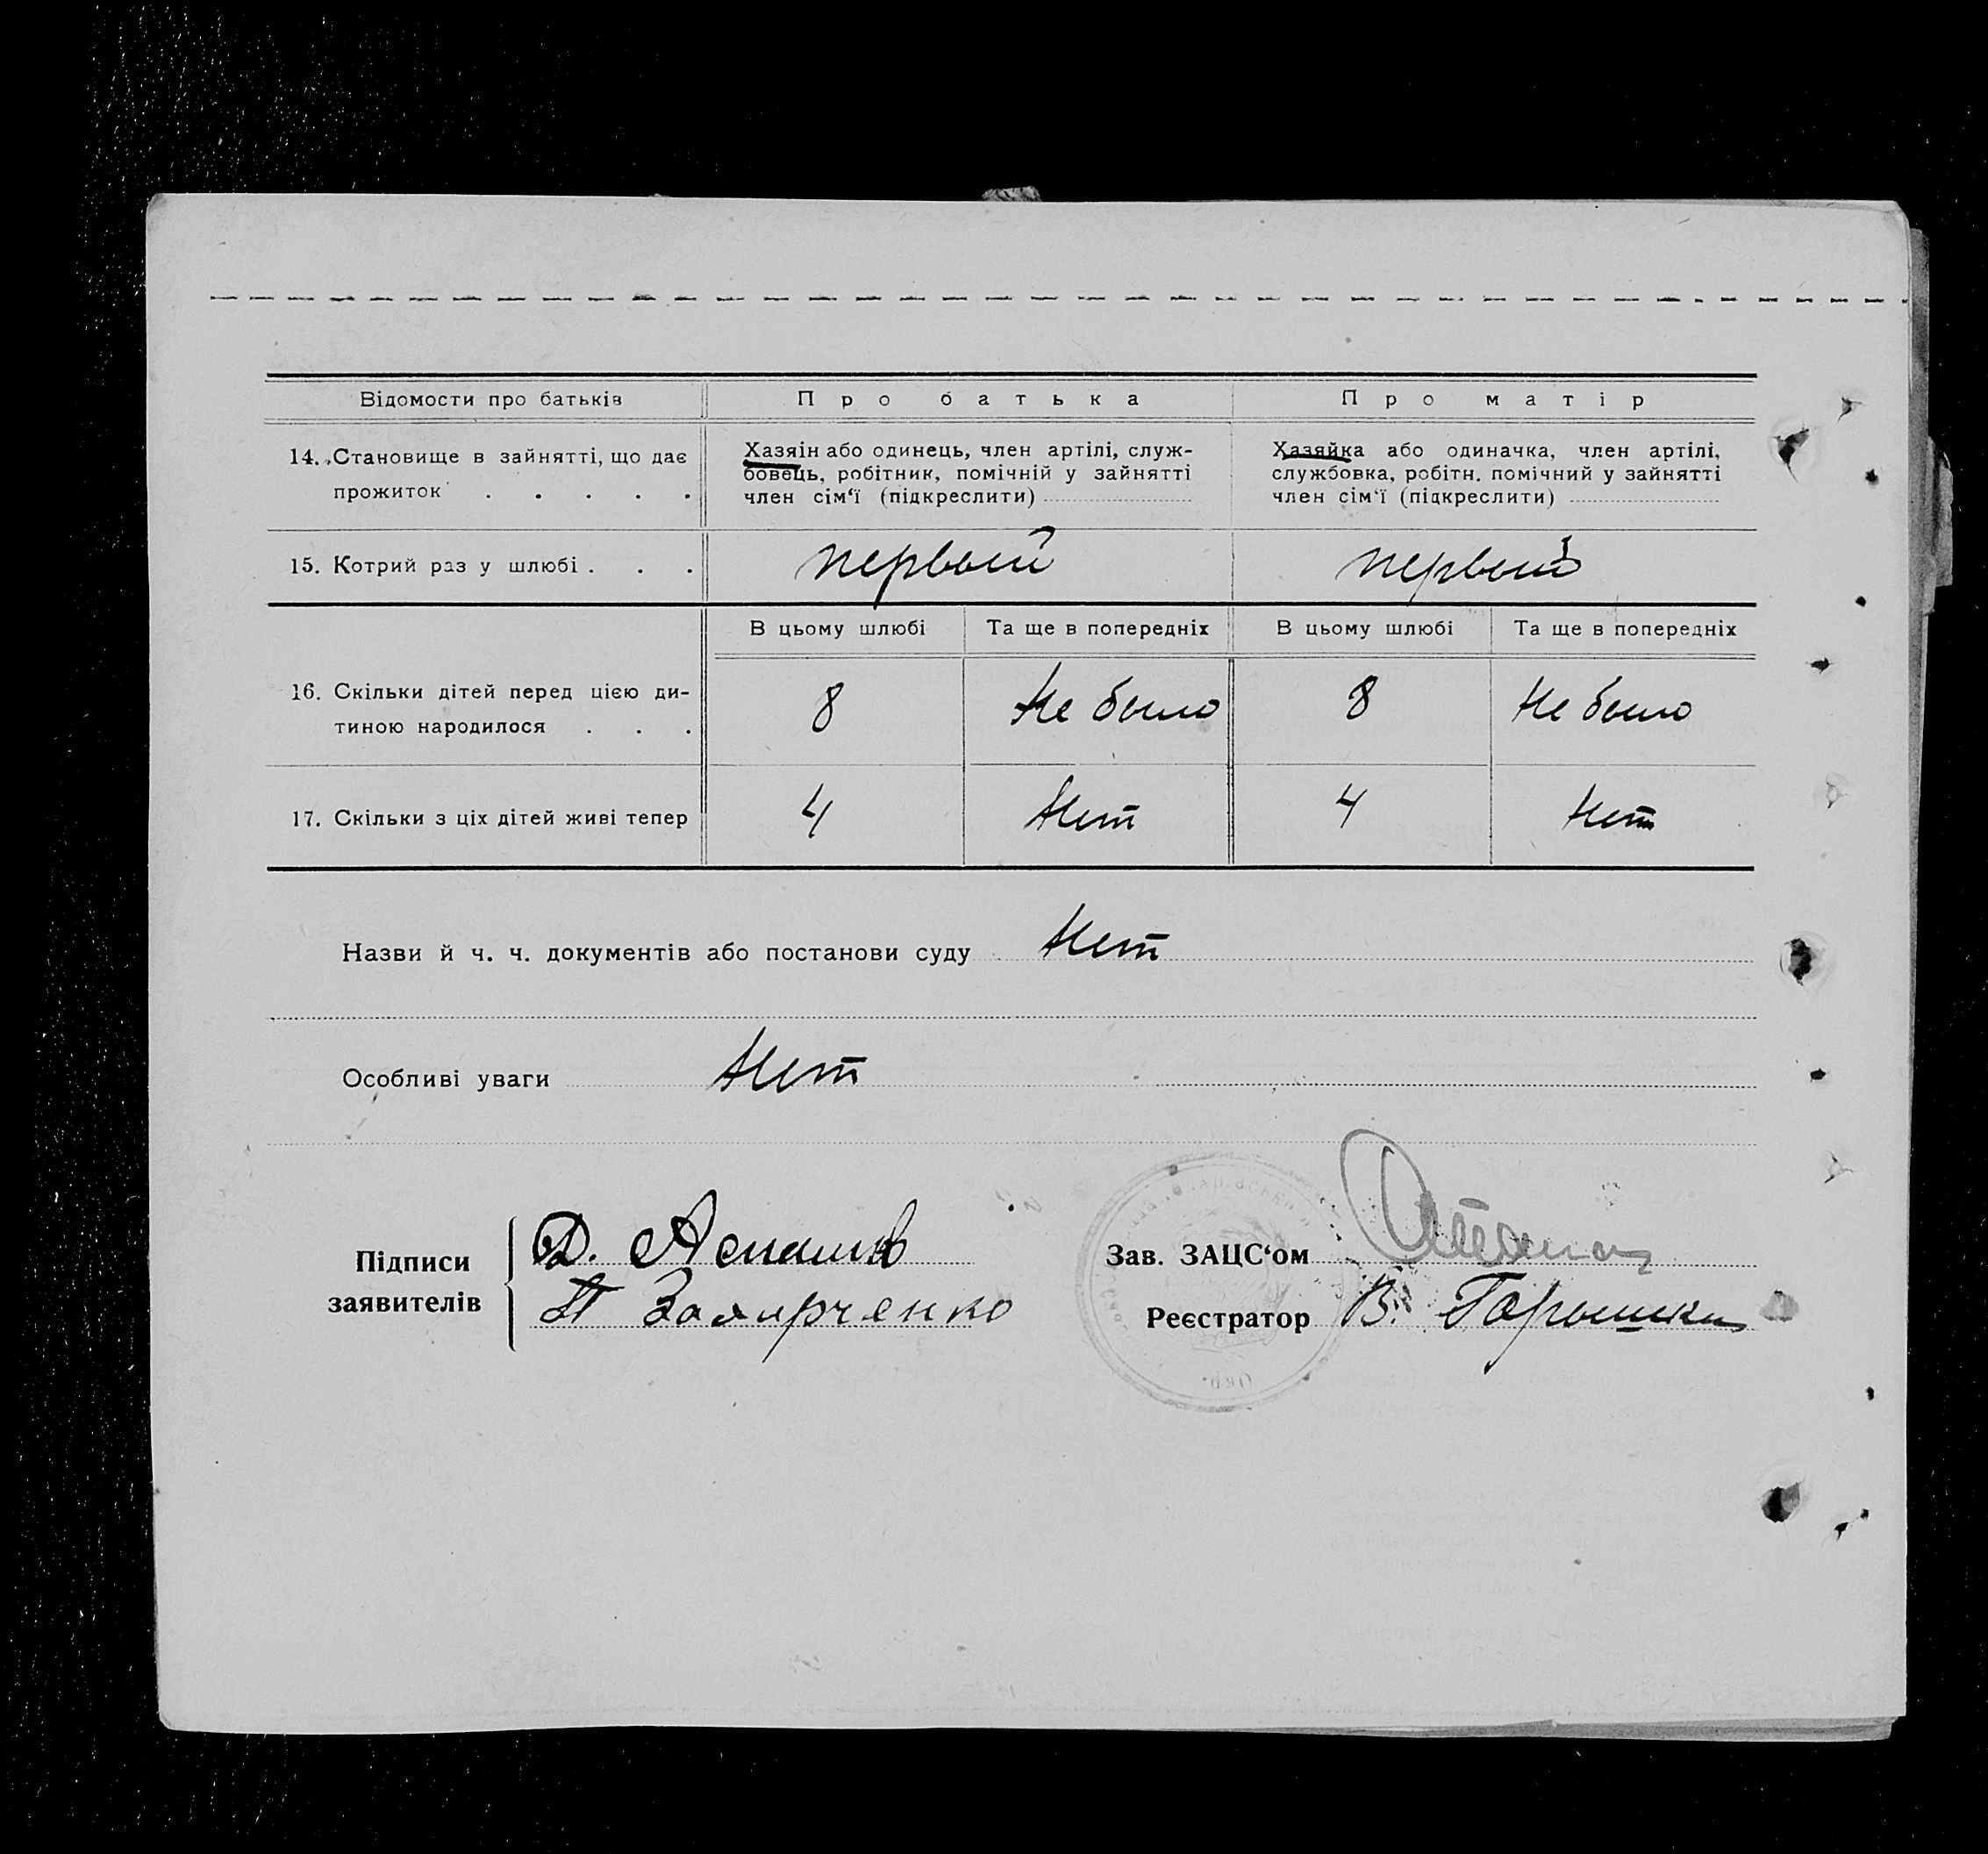 Відомости про батьків Про батька Про матір
14. Становище в зайнятті, що дає
прожиток . . . . .
Хазяін або одинець, член артілі, служ-
бовець, робітник, помічній у зайнятті
член сім‘ї (підкреслити)
Хазяйка або одиначка, член артілі,
службовка, робітн. помічний у зайнятті
член сім‘ї (підкреслити)
15. Котрий раз у шлюбі . . . первый первый
В цьому шлюбі Та ще в попередніх В цьому шлюбі Та ще в попередніх
16. Скільки дітей перед цією ди-
тиною народилося . . .
8 Не было 8 Не было
17. Скільки з ціх дітей живі тепер 4 Нет 4 Нет
Назви й ч. ч. документів або постанови суду Нет
Особливі уваги Нет
Підписи
заявителів
Д.
П
Зав. ЗАЦС‘ом
Реєстратор В.
Окр.